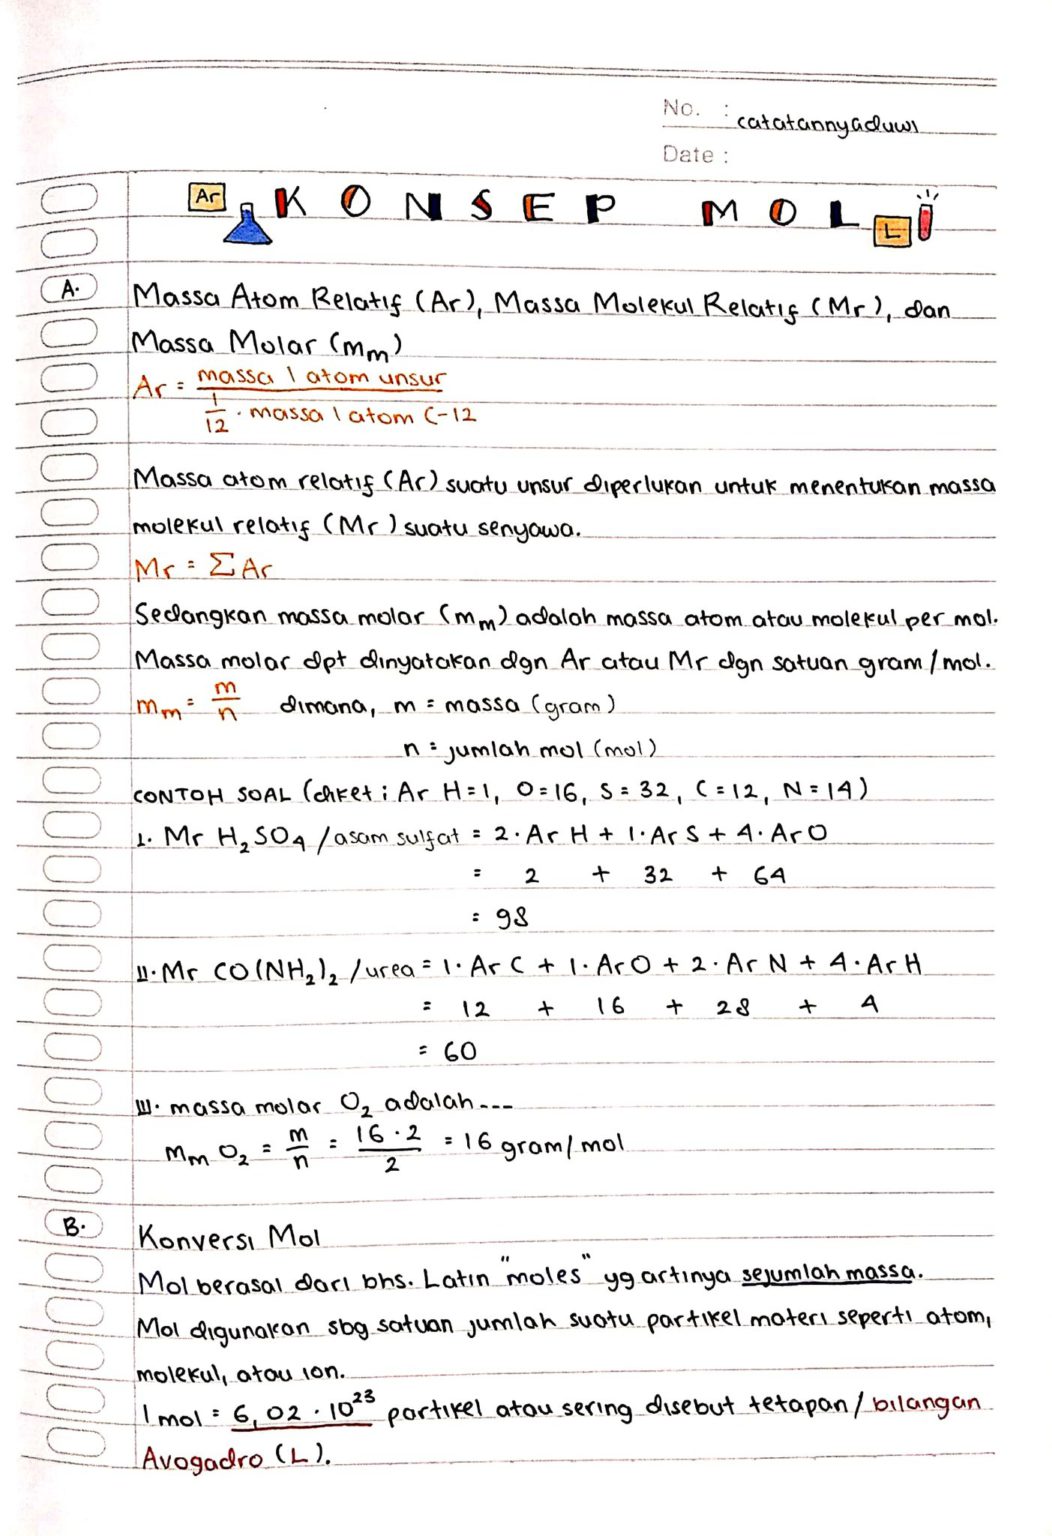 No. : catatannyaduwi
Date :
Ar KONSEP MOL L
A. Massa Atom Relatif (Ar), Massa Molekul Relatif (Mr), dan
Massa Molar (mm)
Ar = massa 1 atom unsur
1/12 . massa 1 atom C-12
Massa atom relatif (Ar) suatu unsur diperlukan untuk menentukan massa
molekul relatif (Mr) suatu senyawa.
Mr = Σ Ar
Sedangkan massa molar (mm) adalah massa atom atau molekul per mol.
Massa molar dpt dinyatakan dgn Ar atau Mr dgn satuan gram/mol.
mm = m/n dimana, m = massa (gram)
n = jumlah mol (mol)
CONTOH SOAL (diket : Ar H=1, O=16, S=32, C=12, N=14)
I. Mr H₂SO₄ /asam sulfat = 2. Ar H + 1. Ar S + 4. Ar O
= 2 + 32 + 64
= 98
II. Mr CO(NH₂)₂ /urea = 1. Ar C + 1. Ar O + 2. Ar N + 4. Ar H
= 12 + 16 + 28 + 4
= 60
III. massa molar O₂ adalah---
mm O₂ = m/n = 16.2/2 = 16 gram/mol
B. Konversi Mol
Mol berasal dari bhs. Latin "moles" yg artinya sejumlah massa.
Mol digunakan sbg satuan jumlah suatu partikel materi seperti atom,
molekul, atau ion.
1 mol = 6,02 . 10²³ partikel atau sering disebut tetapan/bilangan
Avogadro (L).